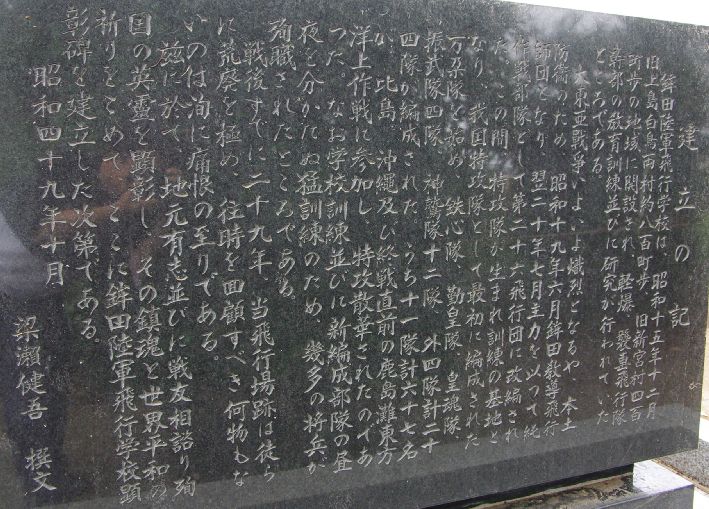 建立の記
鉾田陸軍飛行学校は、昭和十五年十二月
旧上島白鳥両村約八百町歩、旧新宮村四百
町歩の地域に開設され、軽爆、襲撃飛行隊
幹部の教育訓練並びに研究が行われていた
ところである。
大東亜戦争いよいよ熾烈となるや、本土
防衛のため、昭和十九年六月鉾田教導飛行
師団となり、翌二十年七月主力を以って純
作戦部隊として第二十六飛行団に改編され
た。この間、特攻隊が生まれ訓練の基地と
なり、我国特攻隊として最初に編成された
万朶隊を始め、鉄心隊、勤皇隊、皇魂隊、
振武隊四隊、神鷲隊十二隊、外四隊計二十
四隊が編成された。うち十一隊計六十七名
が、比島、沖縄及び終戦直前の鹿島灘東方
洋上作戦に参加し、特攻散華されたのであ
った。なお学校訓練並びに新編成部隊の昼
夜を分かたぬ猛訓練のため、幾多の将兵が
殉職されたところである。
戦後すでに二十九年、当飛行場跡は徒ら
に荒廃を極め、往時を回顧すべき何物もな
いのは洵に痛恨の至りである。
茲に於て、地元有志並びに戦友相諮り殉
国の英霊を顕彰し、その鎮魂と世界平和の
祈りをこめて、ここに鉾田陸軍飛行学校顕
彰碑を建立した次第である。
昭和四十九年十月
梁瀬健吾 撰文